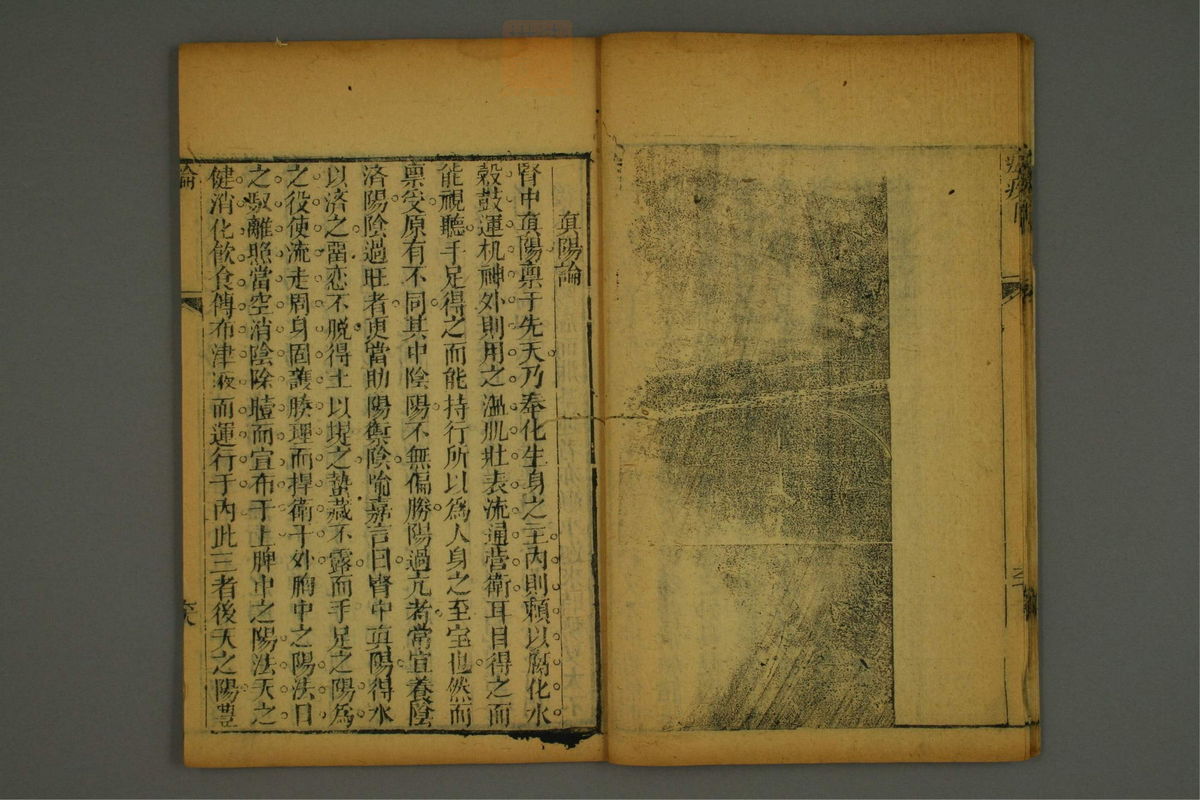 真陽論
腎中真陽禀于先天乃奉化生身之主内則賴以腐化水
穀鼓運机神外則用之溫肌壯表流通营衛耳目得之而
能視聽手足得之而能持行所以為人身之至宝也然而
禀受原有不同其中陰陽不無偏勝陽過亢者常宜養陰
济陽陰過旺者更當助陽禦陰喻嘉言曰腎中真陽得水
以济之畱恋不脱得土以堤之蟄藏不露而手足之陽為
之役使流走周身固護腠理而捍衛于外胸中之陽法日
之馭離照當空消陰除曀而宣布于上脾中之陽法天之
健消化飲食傳布津液而運行于内此三者後天之陽豊
論